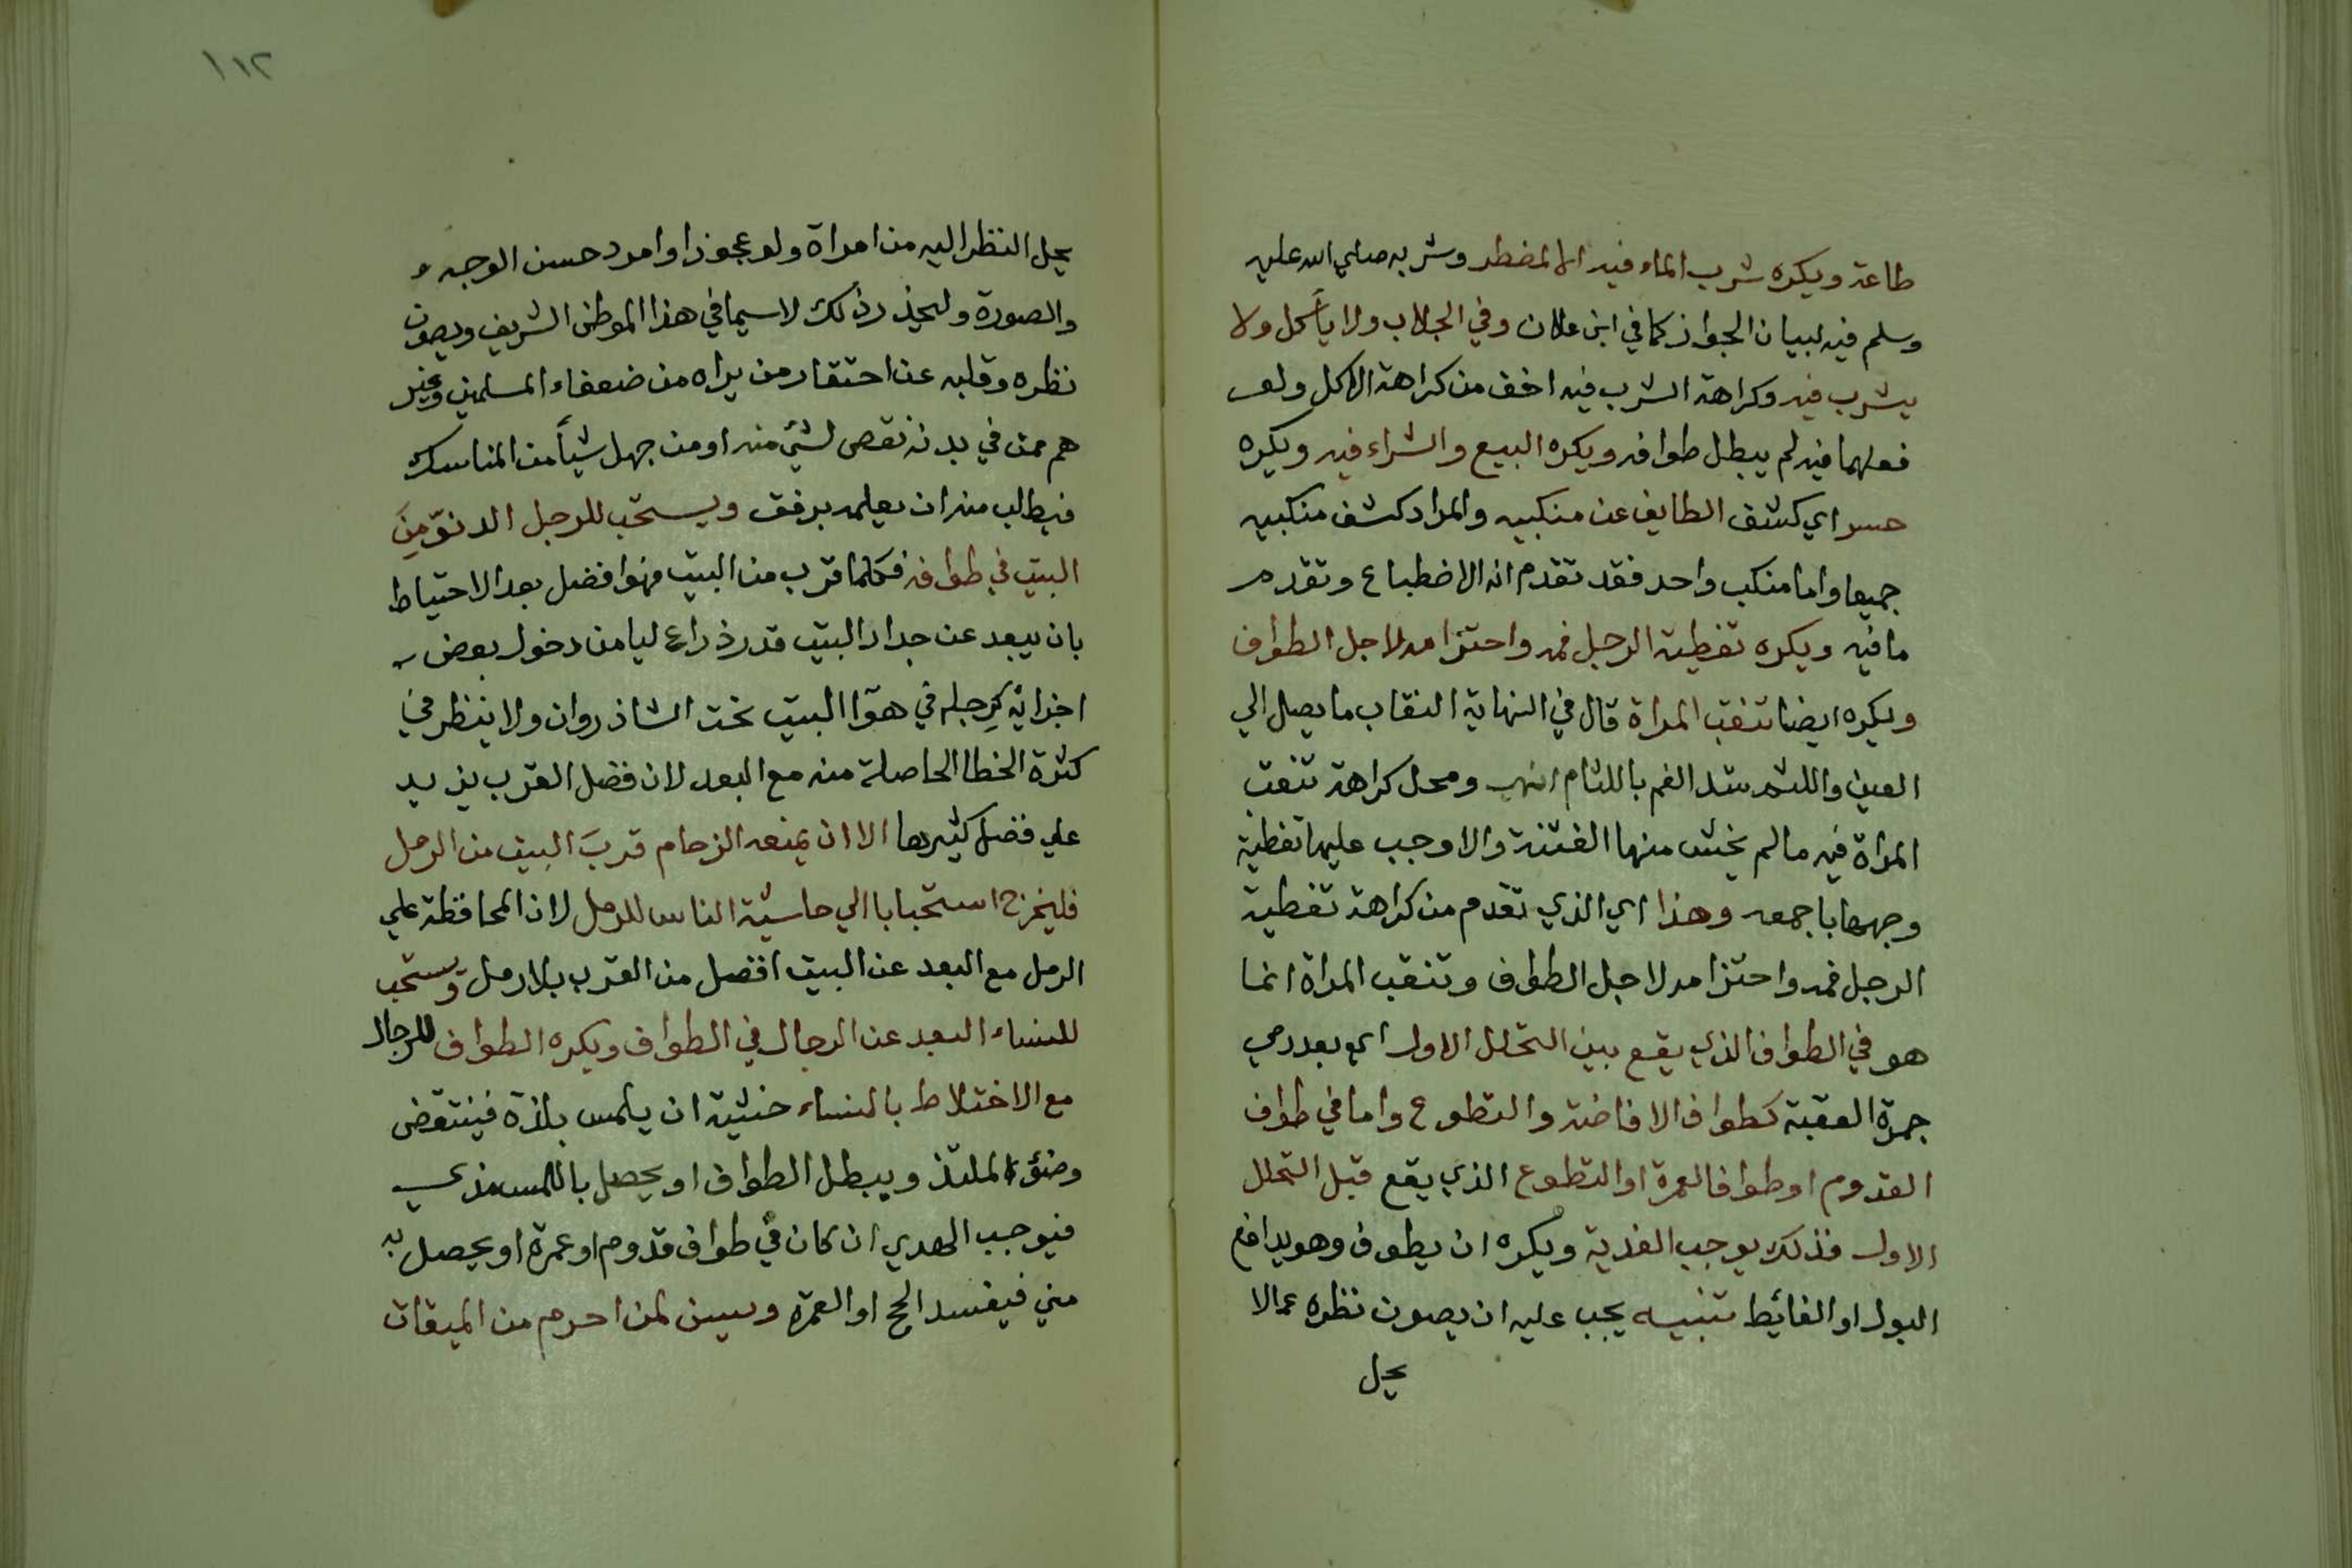 طاعة ويكره شرب الماء فيه الا لمضطر وشربه صلي الله عليه
وسلم فيه لبيان الجواز كما في ابن علان وفي الجلاب ولا يأكل ولا
يشرب فيه وكراهة الشرب فيه اخف من كراهة الاكل ولو
فعلهما فيه لم يبطل طوافه ويكره البيع والشراء فيه ويكره
حسر اي كشف الطايف عن منكبيه والمراد كشف منكبيه
جميعا واما منكب واحد فقد تقدم انه الاضطباع وتقدم
ما فيه ويكره تغطية الرجل فمه واحتزامه لاجل الطواف
ويكره ايضا تنقب المراة قال في النهاية النقاب ما يصل الي
العين واللثم شد الفم باللثام انتهي ومحل كراهة تنقب
المراة فيه ما لم يخش منها الفتنة والا وجب عليها تغطية
وجهها باجمعه وهذا اي الذي تقدم من كراهة تغطية
الرجل فمه واحتزامه لاجل الطواف وتنقب المراة انما
هو في الطواف الذي يقع بين التحلل الاول اي بعد رمي
جمرة العقبة كطواف الافاضة والتطوع واما في طواف
القدوم او طواف العمرة او التطوع الذي يقع قبل التحلل
الاول فذلك يوجب الفدية ويكره ان يطوف وهو يدافع
البول او الغائيط تنبيه يجب عليه ان يصون نظره عما لا
يحل
١١٢
يحل النظر اليه من امراة ولو عجوزا او امرد حسن الوجه و
والصورة وليحذر ذلك لا سيما في هذا الموطن الشريف ويصون
نظره وقلبه عن احتقار من يراه من ضعفاء المسلمين وغير
هم ممن في بدنه نقص لشيء منه او من جهل شيأ من المناسك
فيطلب منه ان يعلمه برفق ويستحب للرجل الدنوّ مِنَ
البيت في طوافه فكلما قرب من البيت فهو افضل بعد الاحتياط
بان يبعد عن جدار البيت قدر ذراع ليامن دخول بعض
اجزائه كرِجله في هوآ البيت تحت الشاذروان ولا ينظر في
كثرة الخطا الحاصلة منه مع البعد لان فضل القرب يزيد
علي فضل كثيرها الا ان يمنعه الزحام قربَ البيت من الرمل
فليخرج استحبابا الي حاشية الناس للرمل لان المحافظة علي
الرمل مع البعد عن البيت افضل من القرب بلا رمل ويستحب
للنساء البعد عن الرجال في الطواف ويكره الطواف للرجال
مع الاختلاط بالنساء خشية ان يلمس بلذة فينتقض
وضؤه الملتذ ويبطل الطواف او يحصل باللمس مذي
فيوجب الهدي ان كان في طواف قدوم او عمرة او يحصل به
مني فيفسد الحج او العمرة ويسن لمن احرم من الميقات